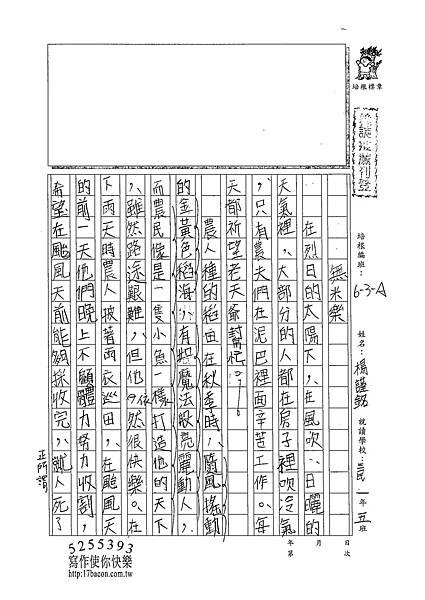 培根標章
培根編班：6-3-A
姓名：
就讀學校：
年五班
次 日 月 年 第
無米樂
在烈日的太陽下，在風吹、日曬的
天氣裡，大部分的人都在房子裡吹冷氣
，只有農夫們在泥巴裡面辛苦工作。每
天都祈望老天爺幫忙……
農人種的稻田在秋季時，隨風搖動
的金黃色稻海，有如魔法般亮麗動人，
而農民像是一隻小魚一樣打造他的天下
，雖然路途艱難，但他依然很快樂。在
下雨天時農人披著雨衣巡田，在颱風天
的前一天他們晚上不顧體力努力收割，
希望在颱風天前能夠採收完，就人死了
正所謂
5255393
寫作使你快樂
http://17bacon.com.tw/